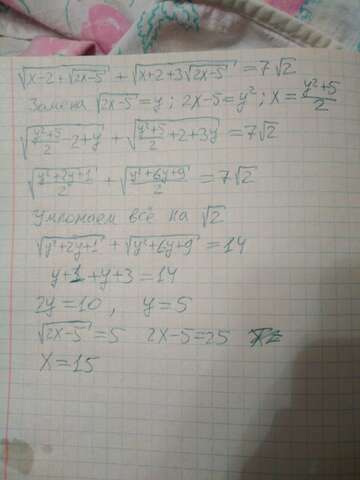 √(x-2+√(2x-5)) + √(x+2+3√(2x-5)) = 7√2
Замена √(2x-5) = y; 2x-5 = y²; x = (y²+5)/2
√((y²+5)/2 - 2 + y) + √((y²+5)/2 + 2 + 3y) = 7√2
√((y²+2y+1)/2) + √((y²+6y+9)/2) = 7√2
Умножаем всё на √2
√(y²+2y+1) + √(y²+6y+9) = 14
y+1+y+3=14
2y=10, y=5
√(2x-5) = 5 2x-5=25
x=15